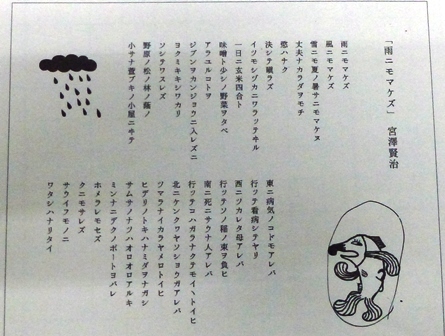 「雨ニモマケズ」 宮澤賢治
雨ニモマケズ
風ニモマケズ
雪ニモ夏ノ暑サニモマケヌ
丈夫ナカラダヲモチ
慾ハナク
決シテ瞋ラズ
イツモシヅカニワラッテヰル
一日ニ玄米四合ト
味噌ト少シノ野菜ヲタベ
アラユルコトヲ
ジブンヲカンジョウニ入レズニ
ヨクミキキシワカリ
ソシテワスレズ
野原ノ松ノ林ノ蔭ノ
小サナ萱ブキノ小屋ニヰテ
東ニ病気ノコドモアレバ
行ッテ看病シテヤリ
西ニツカレタ母アレバ
行ッテソノ稲ノ束ヲ負ヒ
南ニ死ニサウナ人アレバ
行ッテコハガラナクテモイヽトイヒ
北ニケンクヮヤソショウガアレバ
ツマラナイカラヤメロトイヒ
ヒデリノトキハナミダヲナガシ
サムサノナツハオロオロアルキ
ミンナニデクノボートヨバレ
ホメラレモセズ
クニモサレズ
サウイフモノニ
ワタシハナリタイ